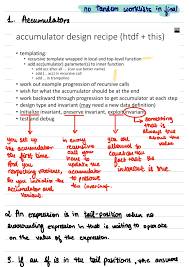 no tandem worklists in final
1. Accumulators
accumulator design recipe (htdf + this)
• templating:
• recursive template wrapped in local and top-level function
• add accumulator parameter(s) to inner function
• add acc after all
• add in recursive call
• add in trampoline
• work out example progression of recursive calls
• wish for what the accumulator should be at the end
• work backward through progression to get accumulator at each step
• design type and invariant (may need a new data definition)
• initialize invariant, preserve invariant, exploit invariant
• test and debug
something that is always true about the value
you set up the accumulator the first time And you respecting invariant, so you initialize the accumulator and Variant
in every recursive call your have to update the accumulator to preserve the invariant
you are allowed to count on the fact that the invariant is true
2. An expression is in tail-position when no
surrounding expression in that is waiting to operate
on the value of the expression.
3. If an f is in the tail positions, the answers